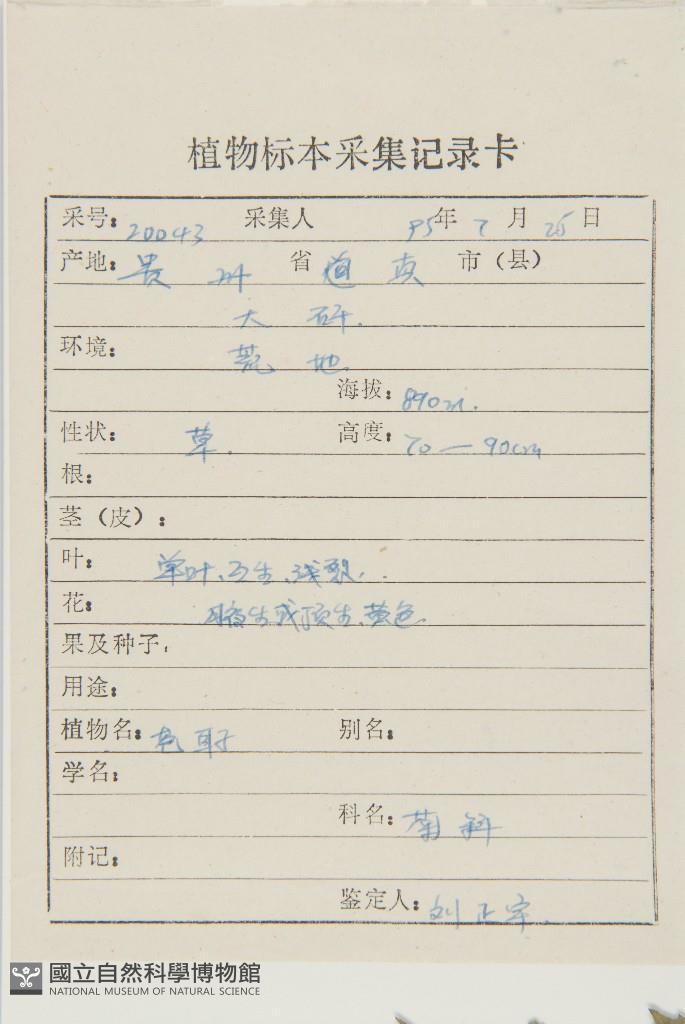 植物标本采集记录卡
采号: 20043 采集人 95年 7月 25日
产地: 贵州省道真市(县)
大矸.
环境: 荒地
海拔: 890m.
性状: 草. 高度: 70—90cm
根:
茎(皮):
叶: 单叶、互生、浅裂.
花: 腋生或顶生、黄色.
果及种子:
用途:
植物名: 苍耳 别名:
学名:
科名: 菊科
附记:
鉴定人: 刘正宇.
國立自然科學博物館
NATIONAL MUSEUM OF NATURAL SCIENCE